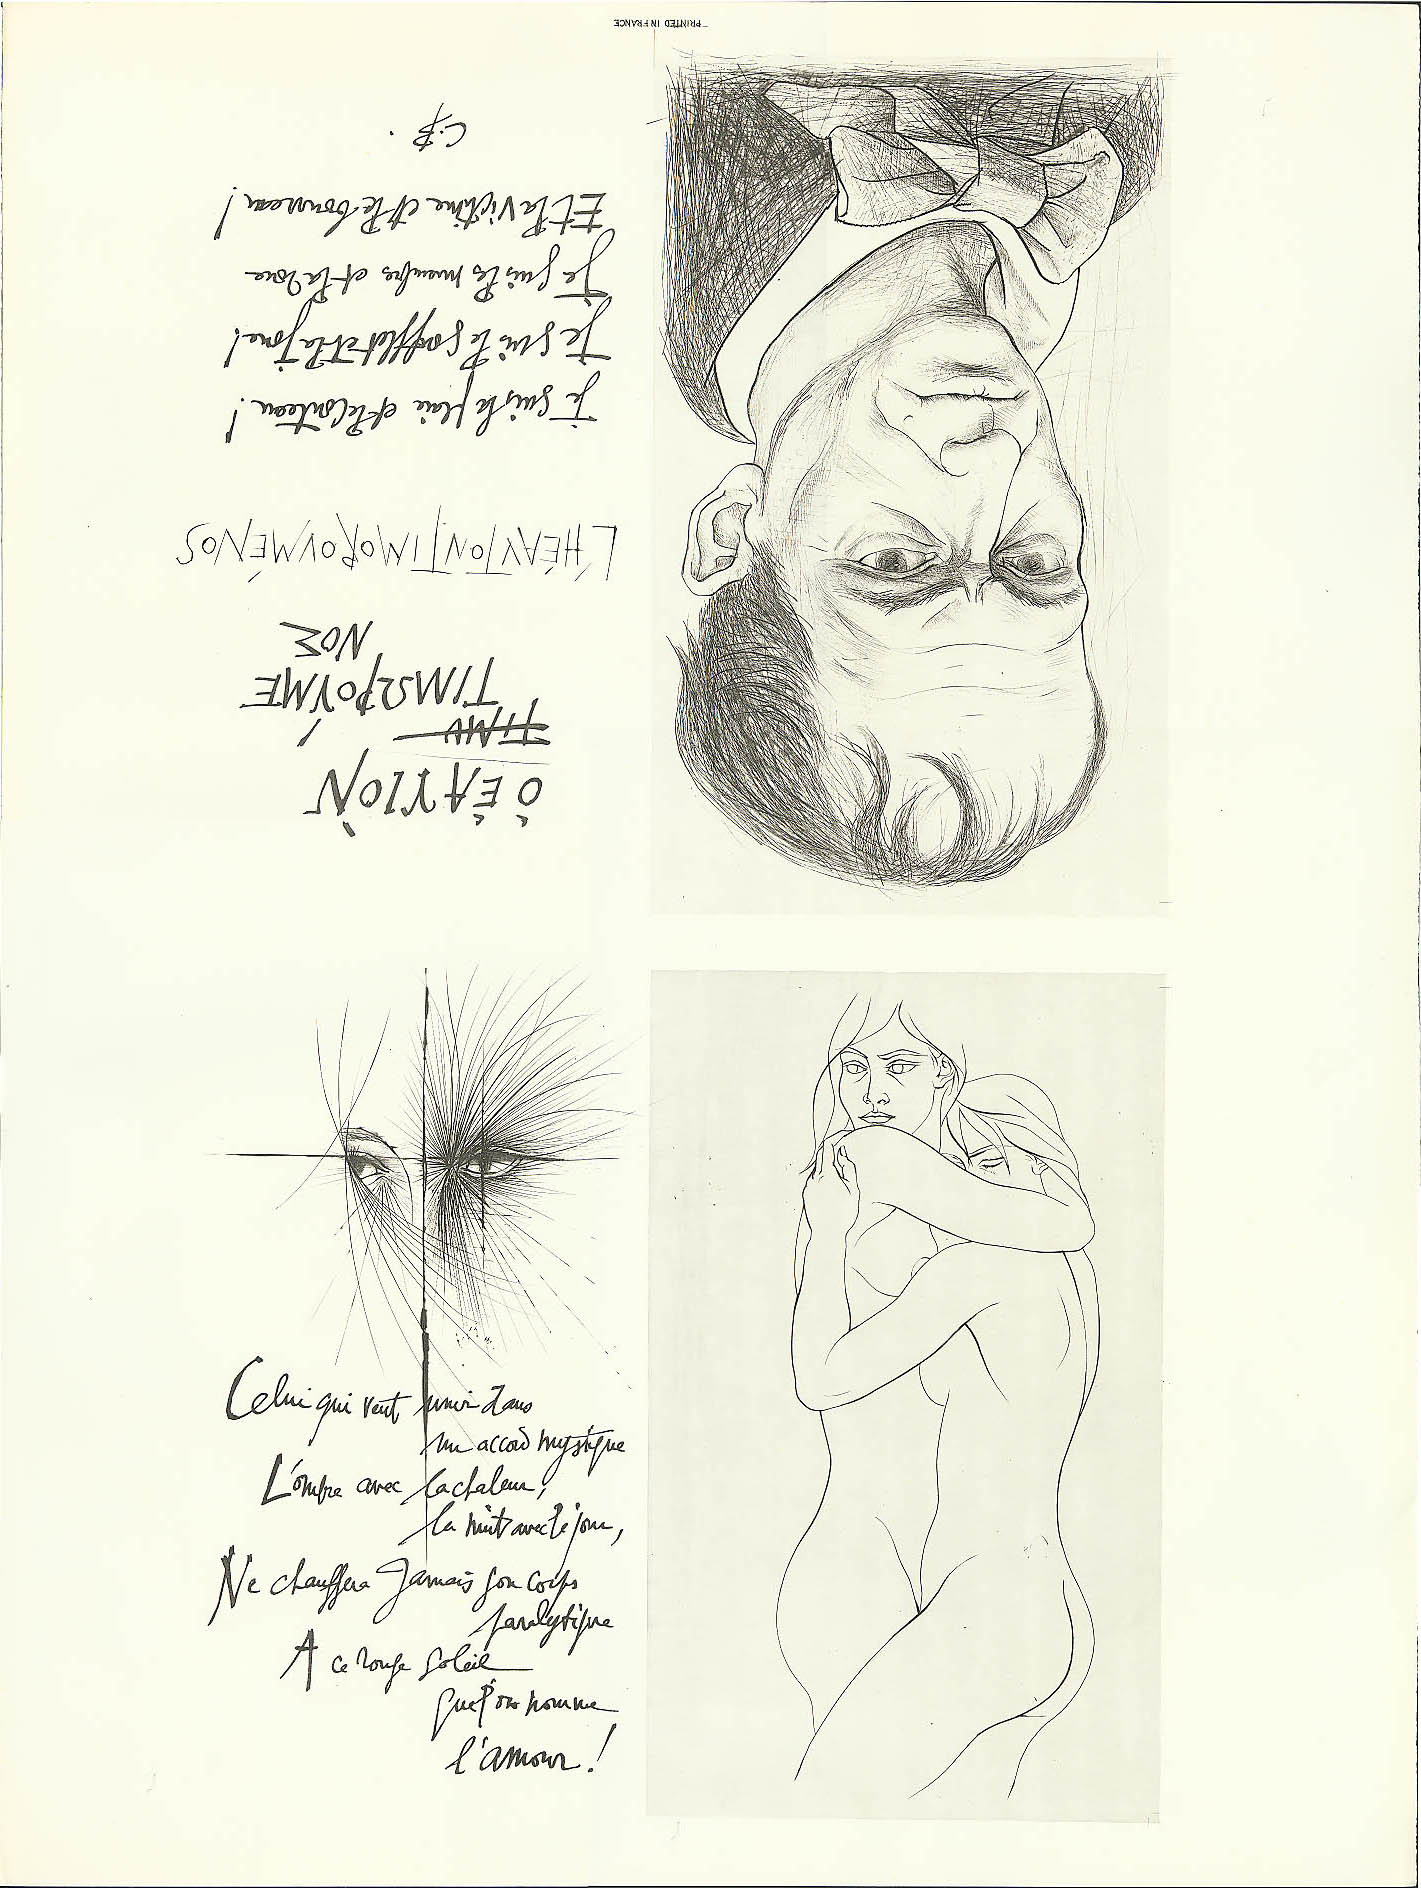 PRINTED IN FRANCE
Ὁ ἙΑΥΤῸΝ
TIMU
ΤΙΜΩΡΟΎΜΕ
ΝΟΣ
L'HÉAYTONTIMOROYMÉNOS
Je suis la plaie et le couteau!
Je suis le soufflet et la joue!
Je suis les membres et la roue
Et la victime et le bourreau!
C.B.
Celui qui veut unir dans
un accord mystique
L'ombre avec la chaleur,
la nuit avec le jour,
Ne chauffera jamais son corps
paralytique
A ce rouge soleil
que l'on nomme
l'amour!